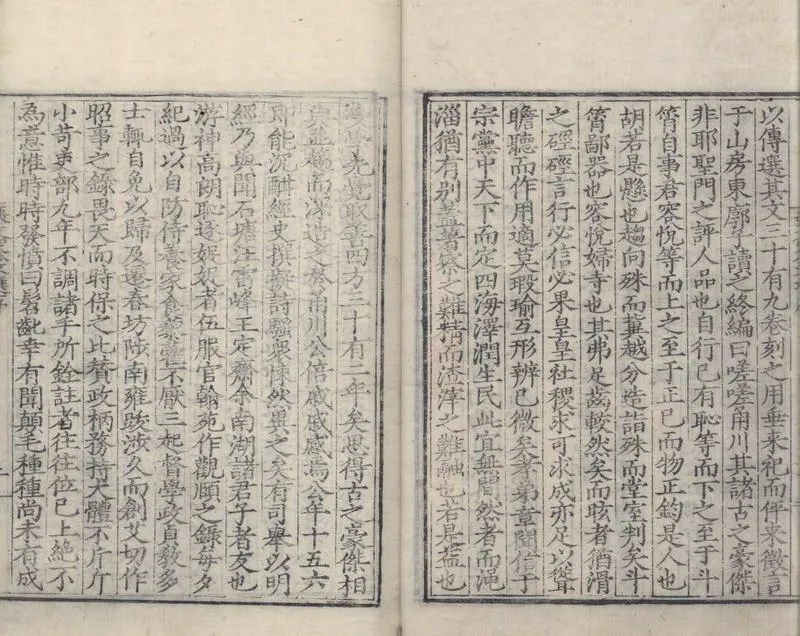 以傳選其文三十有九卷刻之用垂來祀而伻來徵言
于山房東廓子讀之終編曰嗟嗟甬川其諸古之豪傑
非耶聖門之評人品也自行己有恥等而下之至于斗
筲自事君容悅等而上之至于正己而物正鈞是人也
胡若是懸也趨向殊而冀越分造詣殊而堂室判矣斗
筲鄙器也容悅婦寺也其弗足齒較然矣而眩者猶滑
之硜硜言行必信必果皇皇社稷求可求成亦足以聳
瞻聽而作用適莫瑕瑜互形辨已微矣孝弟章聞信于
宗黨中天下而定四海澤潤生民此宜無間然者而澠
淄猶有別蓋著察之難精而渣滓之難融也若是蓋也
學先覺取善四方三十有二年矣思得古之豪傑相
與並趨而深造之於甬川公倍戚戚感焉公年十五六
即能沉酣經史撰擬詩騷褎悚然異之矣有司舉以明
經乃與聞石塘汪雪峰王定齋余南湖諸君子者友也
游神高朗恥逐婗婗者伍服官翰苑作觀頤之錄每夕
紀過以自防侍養家食藜藿不厭三起督學政貞教多
士輒自免以歸及遷春坊陟南雍跋涉久而創艾切作
昭事之錄畏天而時保之比贊政柄務持大體不斤斤
小苛吏部九年不調諸手所銓註者往往位已上絕不
為意惟時時發憤曰髫齔幸有聞顛毛種種尚未有成